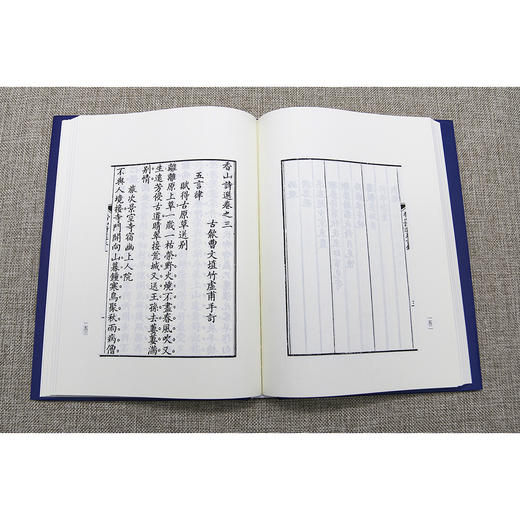 香山詩選卷之三
古歙曹文埴竹虛甫手訂
五言律
賦得古原草送別
離離原上草。一歲一枯榮。野火燒不盡。春風吹又
生。遠芳侵古道。晴翠接荒城。又送王孫去。萋萋滿
別情。
旅次景空寺宿幽上人院
不與人境接。寺門開向山。暮鐘寒鳥聚。秋雨病僧